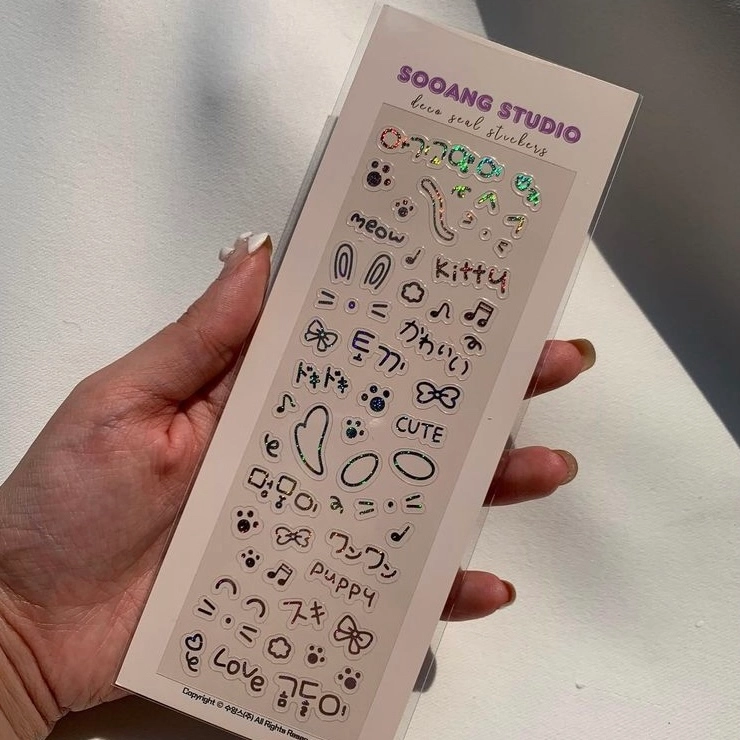 SOOANG STUDIO
deco seal stickers
meow
Kitty
かわいい
토끼
ドキドキ
CUTE
멍뭉이
ワンワン
PUPPY
スキ
LOVE
곰돌이
Copyright © 수앙스(주) All Rights Reser